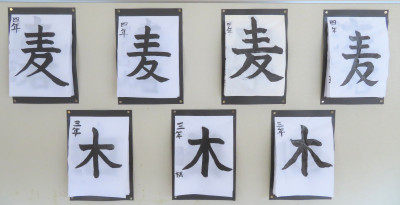 四年
麦
四年
麦
四年
麦
四年
麦
三年
木
三年
木
三年
木